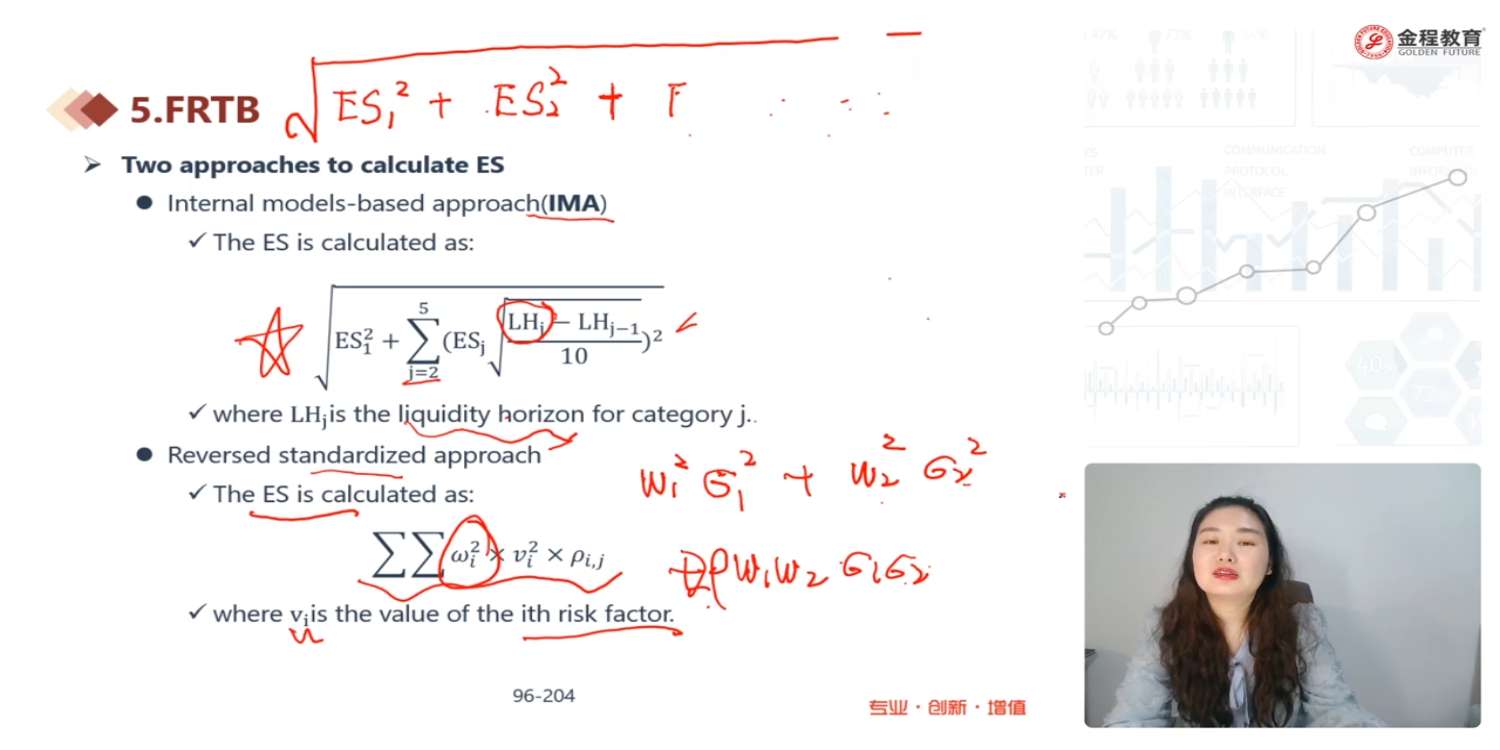 金程教育
GOLDEN FUTURE
5.FRTB
√ ES₁² + ES₂² +
➢ Two approaches to calculate ES
● Internal models-based approach(IMA)
✓ The ES is calculated as:
√(ES₁² + ∑_{j=2}^{5} (ES_j √((LH_j − LH_{j−1})/10))²)
✓ where LH_j is the liquidity horizon for category j..
● Reversed standardized approach
W₁² σ₁² + W₂² σ₂²
✓ The ES is calculated as:
∑∑ω_i² × v_i² × ρ_{i,j}
ρW₁W₂ σ₁σ₂
✓ where v_i is the value of the ith risk factor.
96-204
专业·创新·增值